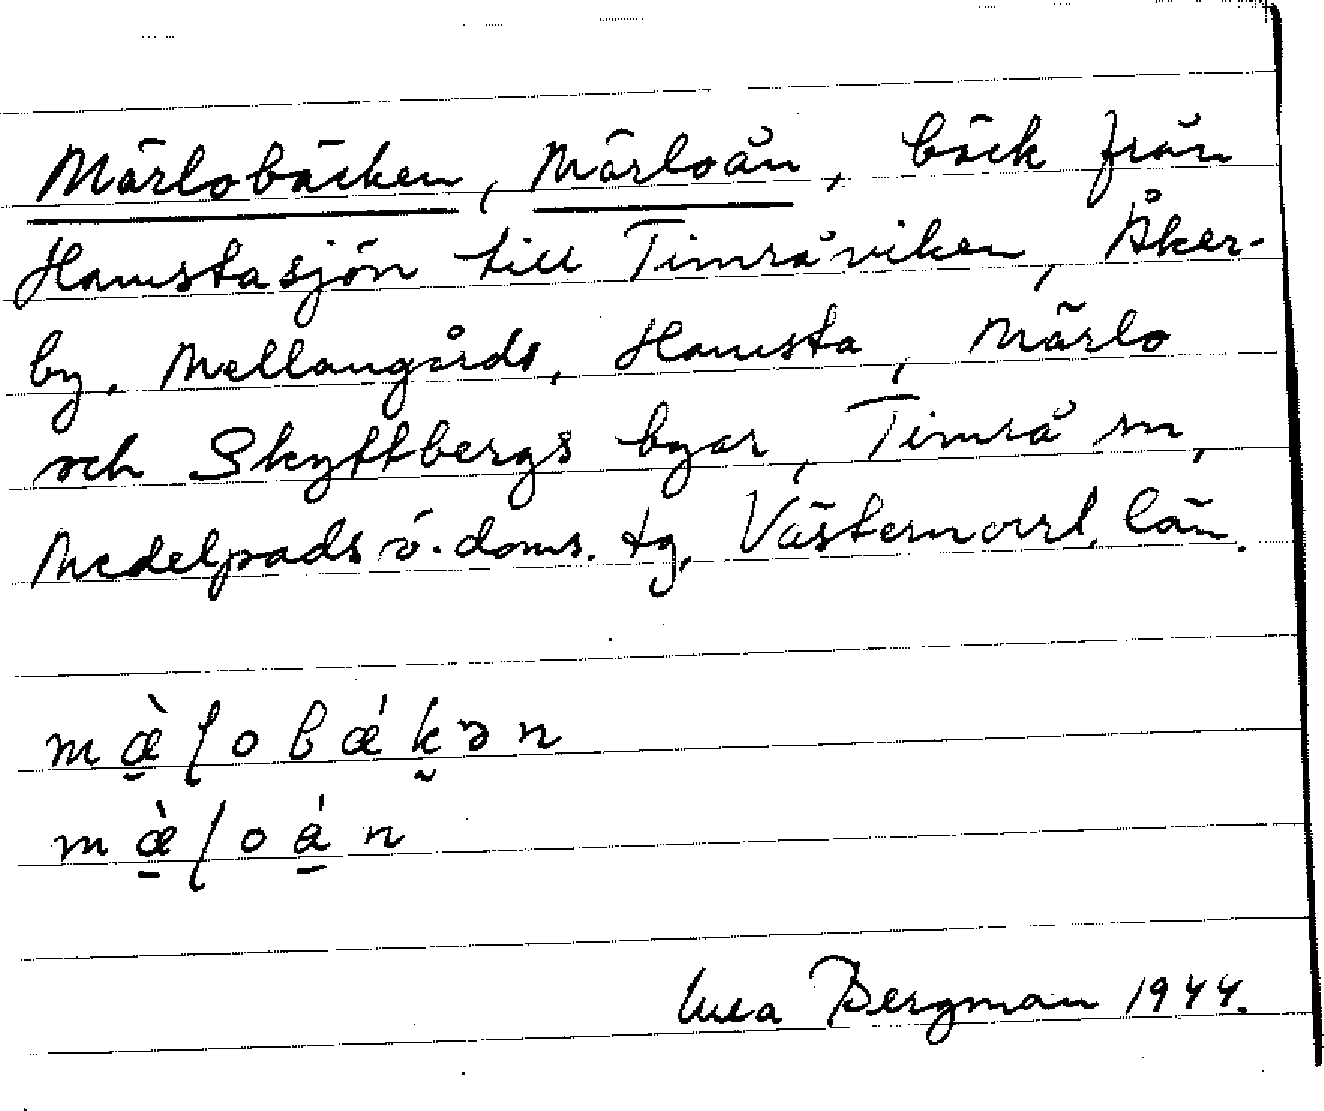 Märlobäcken, Märloån, bäck från
Hamstasjön till Timråviken, Åker-
by, Mellangårds, Hamsta, Märlo
och Skyttbergs byar, Timrå sn,
Medelpads ö. doms. tg, Västernorrl. län.
mæ̠̀ɭobǽk̰ən
mæ̠̀ɭoá̠n
Bergman 1944.